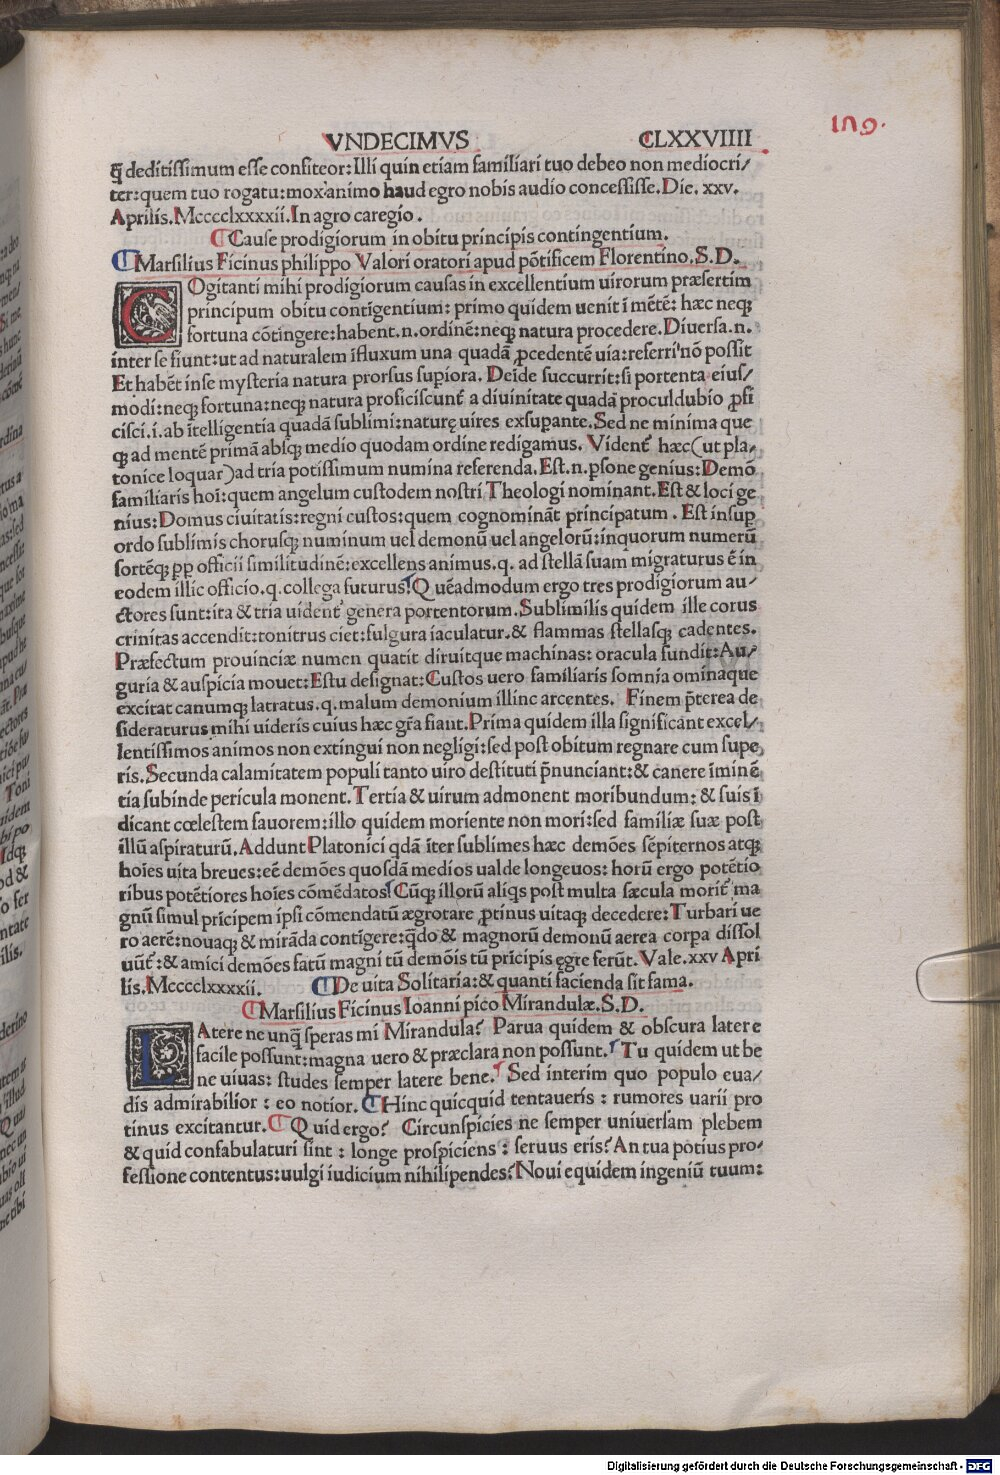 VNDECIMVS CLXXVIIII
189.
ꝗ̃ deditissimum esse confiteor: Illi quin etiam familiari tuo debeo non mediocri/
ter: quem tuo rogatu: mox animo haud egro nobis audio concessisse. Die. xxv.
Aprilis. Mcccclxxxxii. In agro caregio.
Cause prodigiorum in obitu principis contingentium.
Marsilius Ficinus philippo Valori oratori apud põtificem Florentino. S. D.
COgitanti mihi prodigiorum causas in excellentium uirorum præsertim
principum obitu contigentium: primo quidem uenit ĩ mẽtẽ: hæc neqꝫ
fortuna cõtingere: habent. n. ordinẽ: neqꝫ natura procedere. Diuersa. n.
inter se fiunt: ut ad naturalem ĩfluxum una quadã ꝓcedentẽ uia: referri nõ possit
Et habẽt inse mysteria natura prorsus supiora. Deĩde succurrit: si portenta eius/
modi: neqꝫ fortuna: neqꝫ natura proficiscunt᷑ a diuinitate quadã proculdubio ꝓfi
cisci. i. ab ĩtelligentia quadã sublimi: naturę uires exsupante. Sed ne minima que
qꝫ ad mentẽ primã absqꝫ medio quodam ordine redigamus. Vident᷑ hæc (ut pla/
tonice loquar) ad tria potissimum numina referenda. Est. n. ꝑsone genius: Demõ
familiaris hoĩ: quem angelum custodem nostri Theologi nominant. Est & loci ge
nius: Domus ciuitatis: regni custos: quem cognominãt principatum. Est insuꝑ
ordo sublimis chorusqꝫ numinum uel demonũ uel angelorũ: inquorum numerũ
sortẽqꝫ ꝓꝑ officii similitudinẽ: excellens animus. q. ad stellã suam migraturus ẽ in
eodem illic officio. q. collega futurus. Quẽadmodum ergo tres prodigiorum au/
ctores sunt: ita & tria uident᷑ genera portentorum. Sublimilis quidem ille corus
crinitas accendit: tonitrus ciet: fulgura iaculatur. & flammas stellasqꝫ cadentes.
Præfectum prouinciæ numen quatit diruitque machinas: oracula fundit: Au/
guria & auspicia mouet: Estu designat: Custos uero familiaris somnia ominaque
excitat canumqꝫ latratus. q. malum demonium illinc arcentes. Finem p̃terea de
sideraturus mihi uideris cuius hæc gr̃a fiant. Prima quidem illa significant excel/
lentissimos animos non extingui non negligi: sed post obitum regnare cum supe
ris. Secunda calamitatem populi tanto uiro destituti p̃nunciant: & canere ĩminẽ
tia subinde pericula monent. Tertia & uirum admonent moribundum: & suis ĩ
dicant cœlestem fauorem: illo quidem moriente non mori: sed familiæ suæ post
illũ aspiraturũ. Addunt Platonici qdã ĩter sublimes hæc demões sẽpiternos atqꝫ
hoĩes uita breues: eẽ demões quosdã medios ualde longeuos: horũ ergo potẽtio
ribus potẽtiores hoĩes cõmẽdatos. Cũqꝫ illorũ aliqs post multa sæcula morit᷑ ma
gnũ simul pricipem ipsi cõmendatũ ægrotare ꝓtinus uitaqꝫ decedere: Turbari ue
ro aerẽ: nouaqꝫ & mirãda contĩgere: q̃do & magnorũ demonũ aerea corpa dissol
uũt᷑: & amici demões fatũ magni tũ demõis tũ pricipis ęgre ferũt. Vale. xxv Apri
lis. Mcccclxxxxii. De uita Solitaria: & quanti facienda sit fama.
Marsilius Ficinus Ioanni pico Mirandulæ. S. D.
LAtere ne unq̃ speras mi Mirandula? Parua quidem & obscura latere
facile possunt: magna uero & præclara non possunt. Tu quidem ut be
ne uiuas: studes semper latere bene. Sed interim quo populo eua/
dis admirabilior: eo notior. Hinc quicquid tentaueris: rumores uarii pro
tinus excitantur. Quid ergo? Circunspicies ne semper uniuersam plebem
& quid confabulaturi sint: longe prospiciens: seruus eris? An tua potius pro/
fessione contentus: uulgi iudicium nihilipendes? Noui equidem ingeniũ tuum:
Digitalisierung gefördert durch die Deutsche Forschungsgemeinschaft - DFG